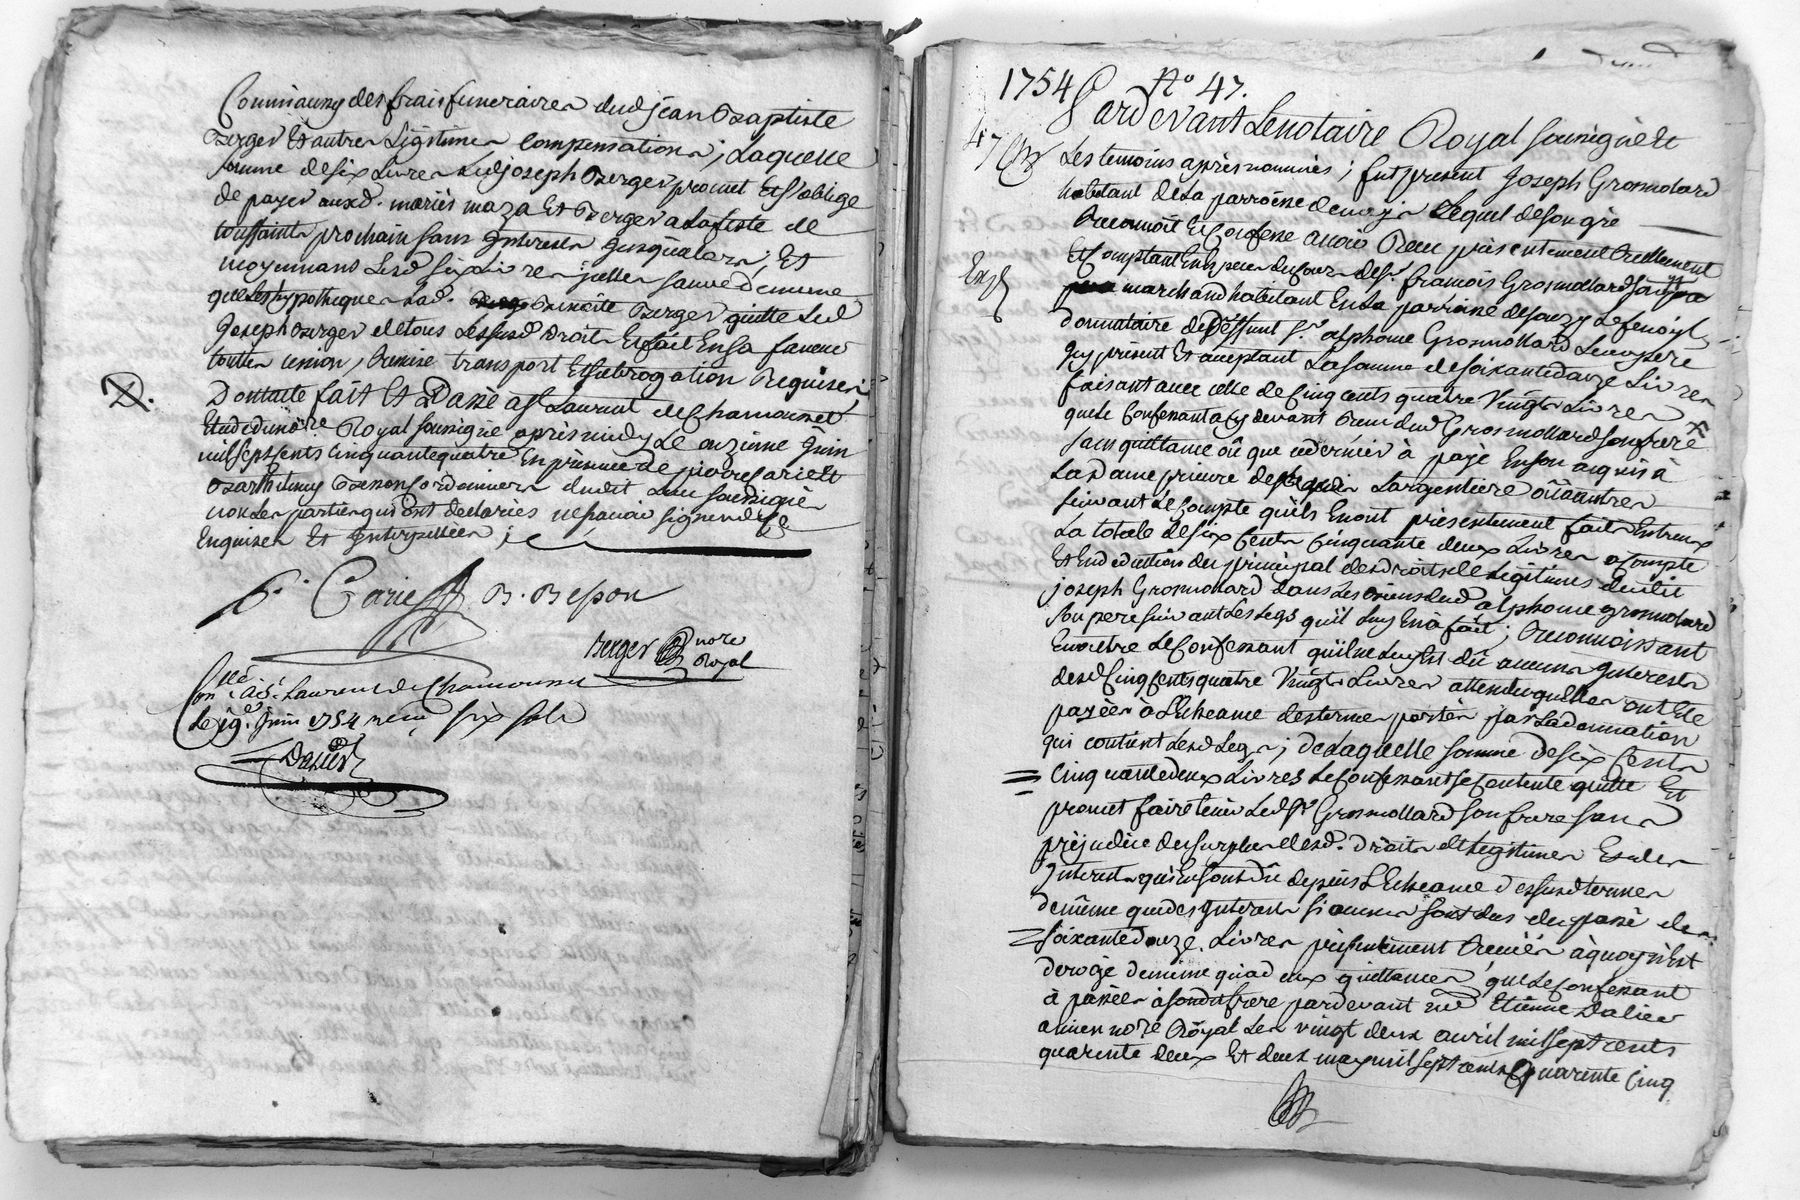 Communy des frais funeraires dud jean Baptiste
Berger Et autres Legitimes compensations ; Laquelle
somme de six Livres Led joseph Berger promet Et s'oblige
de payer auxd. mariés maza Et Berger a La feste de
toussaints prochain sans Interests jusqu'alors ; Et
moyennant Lesd six Livres jcelles sauve demeure
que les hypotheques Lad. Benoite Berger quitte Led
Joseph Berger de tous Lesusd droits Et fait En sa faveur
toutes cession, Remise transport Et subrogation Requises ;
Dont acte fait Et Passé a St Laurent de Chamousset
Etude du no.re Royal soussigné après midy Le onzieme Juin
mil sept cents cinquante quatre En presence de pierre Carie Et
Barthelemy Besson cordonniers dudit Lieu soussignés
non Les parties qui ont declarées ne sçavoir signer de ce
Enquises Et Interpellées ;
P. Carie B. Besson
Berger nore
Royal
Con.llé a St. Laurent de Chamousset
Le 19.e Juin 1754 reçu six sols
Dalier
1754 No 47.
47
Pardevant Le notaire Royal soussigné Et
Les temoins après nommés ; fut present Joseph Grosmolard
habitant de La parroisse de
Lequel de son gré
Reconnoit Et Confesse avoir Receu présentement Reellement
Exp
Et Comptant En Especes du cours de Sr. francois Grosmollard son
marchand habitant En La parroisse de souzy Lefenoÿl
donnataire de Deffunt Sr. alphonse Grosmollard Leur pere
Icy présent Et acceptant La somme de soixante douze Livres
faisant avec celle de Cinq cents quatre Vingts Livres
que le Confessant a cy devant Receu dud Grosmollard son frere
sans quittance où que ce dernier à payé En son acquis à
La dame prieure de Largentiere où à autres
suivant Le Compte qu'ils En ont présentement fait Entreux
La totale de six Cents Cinquante deux Livres a Compte
Et En deduction du principal des droits de Legitimes dudit
joseph Grosmolard dans Les biens dud alphonse grosmolard
son pere suivant Les Legs qu'il Luy En à fait ; Reconnoissant
En outre Le Confessant qu'il ne Luy Est dû aucuns Interests
desd Cinq cents quatre Vingts Livres attendu qu'elles ont Eté
payées à L'Echeance des termes portés par La donnation
qui contient Lesd Legs ; de Laquelle somme de six Cents
Cinquante deux Livres Le Confessant se Contente quitte Et
promet faire tenir Led Sr Grosmollard son frere sans
préjudice du surplus desd. droits de Legitimes Et des
Interests qui En sont dû depuis L'Echeance desusd termes
de même que des Interests si aucuns sont dus du passé des
soixante douze Livres présentement Receües à quoy n'Est
derogé de même qu'aux deux quittances que Le Confessant
à passées à son dit frere pardevant me Etienne Dalier
ancien nore Royal Les vingt deux avril mil sept cents
quarente deux Et deux may mil sept cents quarente Cinq